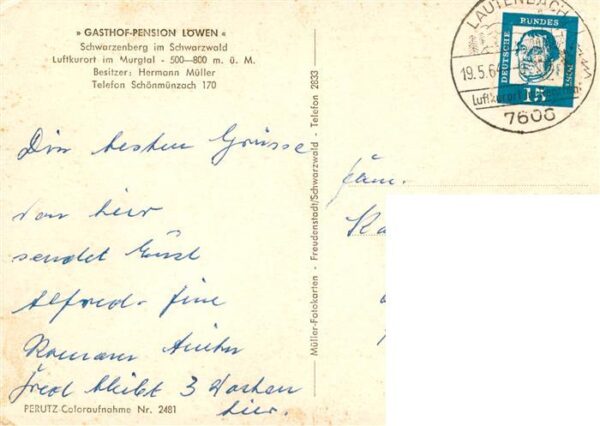 » GASTHOF-PENSION LÖWEN «
Schwarzenberg im Schwarzwald
Luftkurort im Murgtal - 500—800 m. ü. M.
Besitzer: Hermann Müller
Telefon Schönmünzach 170
Die besten Grüsse
von hier
sendet Euch
Alfred
bleibt 3 Wochen
hier.
PERUTZ-Coloraufnahme Nr. 2481
Müller-Fotokarten - Freudenstadt/Schwarzwald - Telefon 2833
LAUTENBACH
19.5.64
Luftkurort
7608
DEUTSCHE BUNDESPOST
15
Fam.